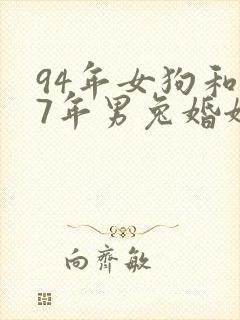 94年女狗和
7年男兔婚姻
向齐敏